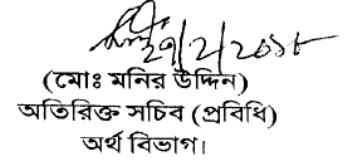 ২৭/২/২০১৮
(মোঃ মনির উদ্দিন)
অতিরিক্ত সচিব (প্রবিধি)
অর্থ বিভাগ।